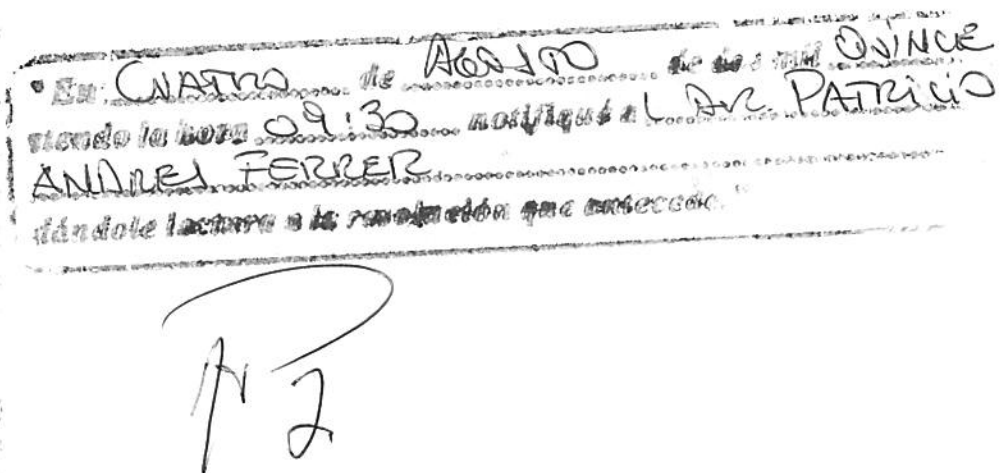 En CUATRO de AGOSTO de dos mil QUINCE
siendo la hora 09:30 notifiqué a L AR. PATRICIO
ANDRES FERRER
dándole lectura a la resolución que antecede.